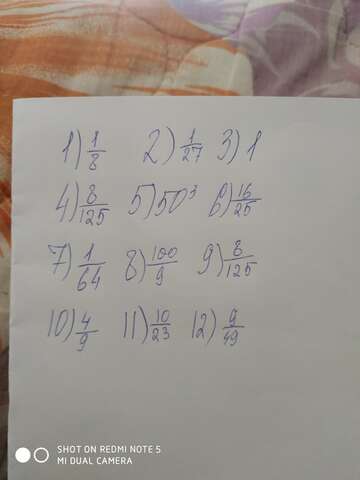 1) 1/8 2) 1/27 3) 1
4) 8/125 5) 50³ 6) 16/25
7) 1/64 8) 100/9 9) 8/125
10) 4/9 11) 10/23 12) 9/49
SHOT ON REDMI NOTE 5
MI DUAL CAMERA